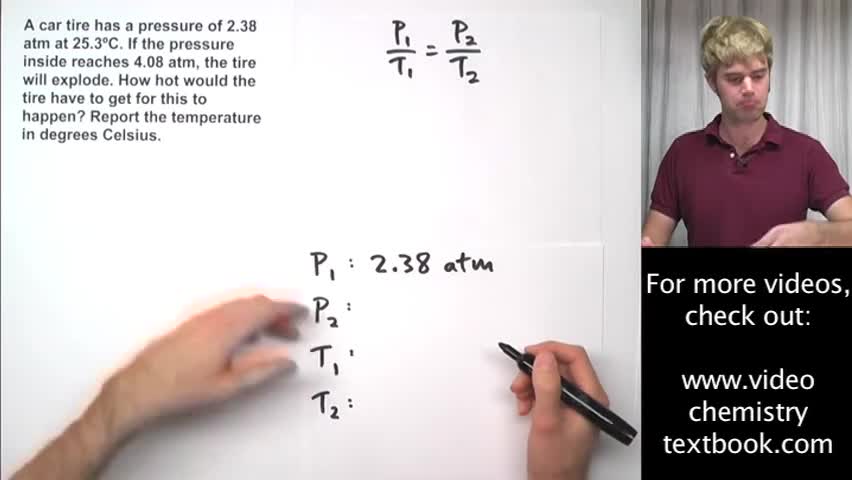 A car tire has a pressure of 2.38
atm at 25.3ºC. If the pressure
inside reaches 4.08 atm, the tire
will explode. How hot would the
tire have to get for this to
happen? Report the temperature
in degrees Celsius.
P₁/T₁ = P₂/T₂
P₁ : 2.38 atm
P₂ :
T₁ :
T₂ :
For more videos,
check out:
www.video
chemistry
textbook.com